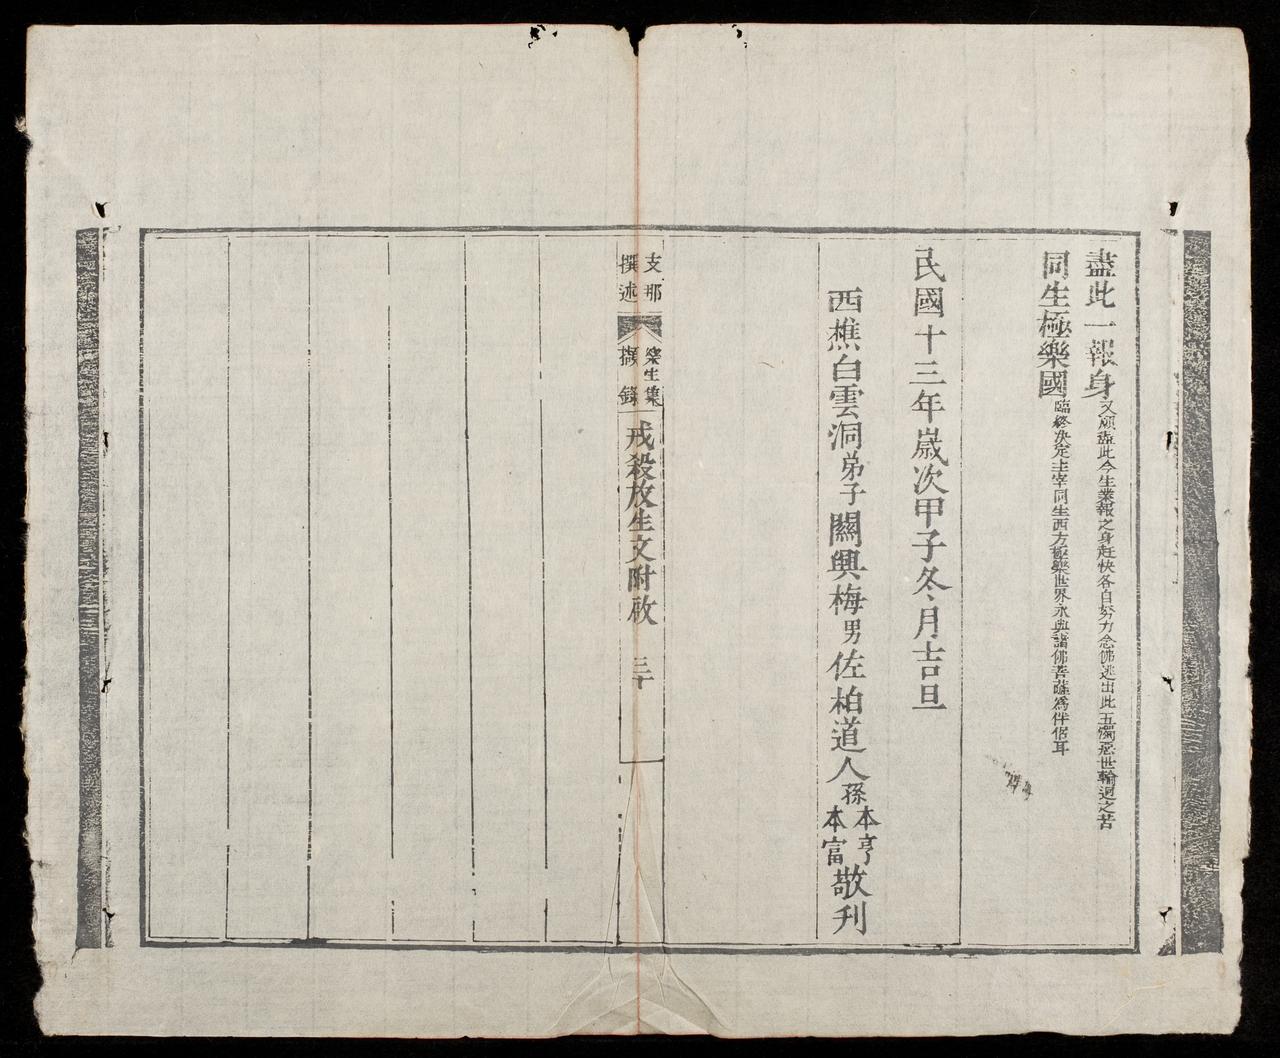 盡此一報身又願盡此今生業報之身赶快各自努力念佛逃出此五濁惡世輪迴之苦
同生極樂國臨終決定主宰同生西方極樂世界永與諸佛菩薩為伴侶耳
民國十三年歲次甲子冬月吉旦
西樵白雲洞弟子關興梅男佐柏道人孫本亨本富敬刊
支那
撰述
樂生集
擷錄
戒殺放生文附啟
三十